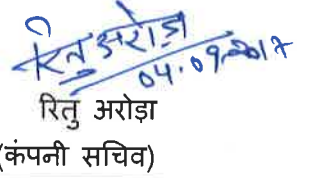 रितु अरोड़ा
04.09.2017
रितु अरोड़ा
(कंपनी सचिव)